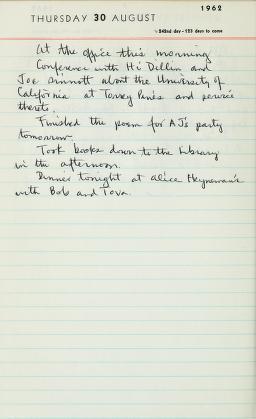 1962
THURSDAY 30 AUGUST
242nd day - 123 days to come
At the office this morning
Conference with Hi Dillin and
Joe Sinnott about the University of
California at Torrey Pines and service
thereto.
Finished the poem for AJ's party
tomorrow.
Took books down to the Library
in the afternoon.
Dinner tonight at Alice Heyneman's
with Bob and Tova.